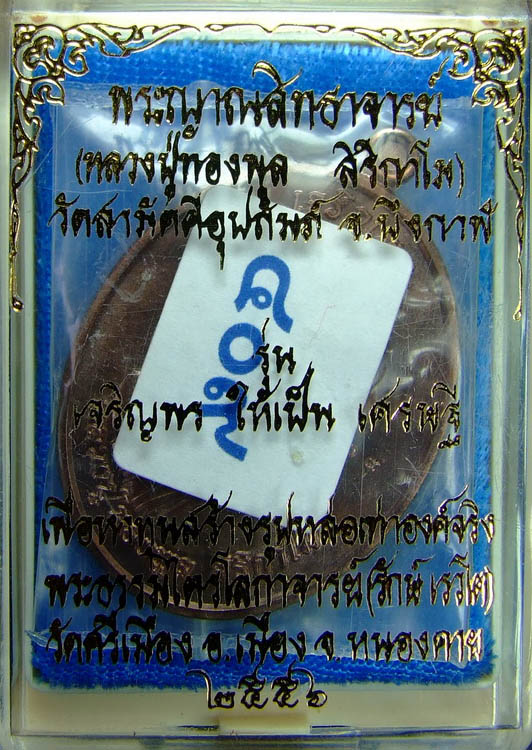 พระญาณสิทธาจารย์
(หลวงปู่ทองพูล สิริกาโม)
วัดสามัคคีอุปถัมภ์ จ.บึงกาฬ
รุ่น
เจริญพร ให้เป็น เศรษฐี
เพื่อหาทุนสร้างรูปหล่อเท่าองค์จริง
พระธรรมไตรโลกาจารย์(รักษ์ เรวโต)
วัดศรีเมือง อ.เมือง จ.หนองคาย
๒๕๕๖